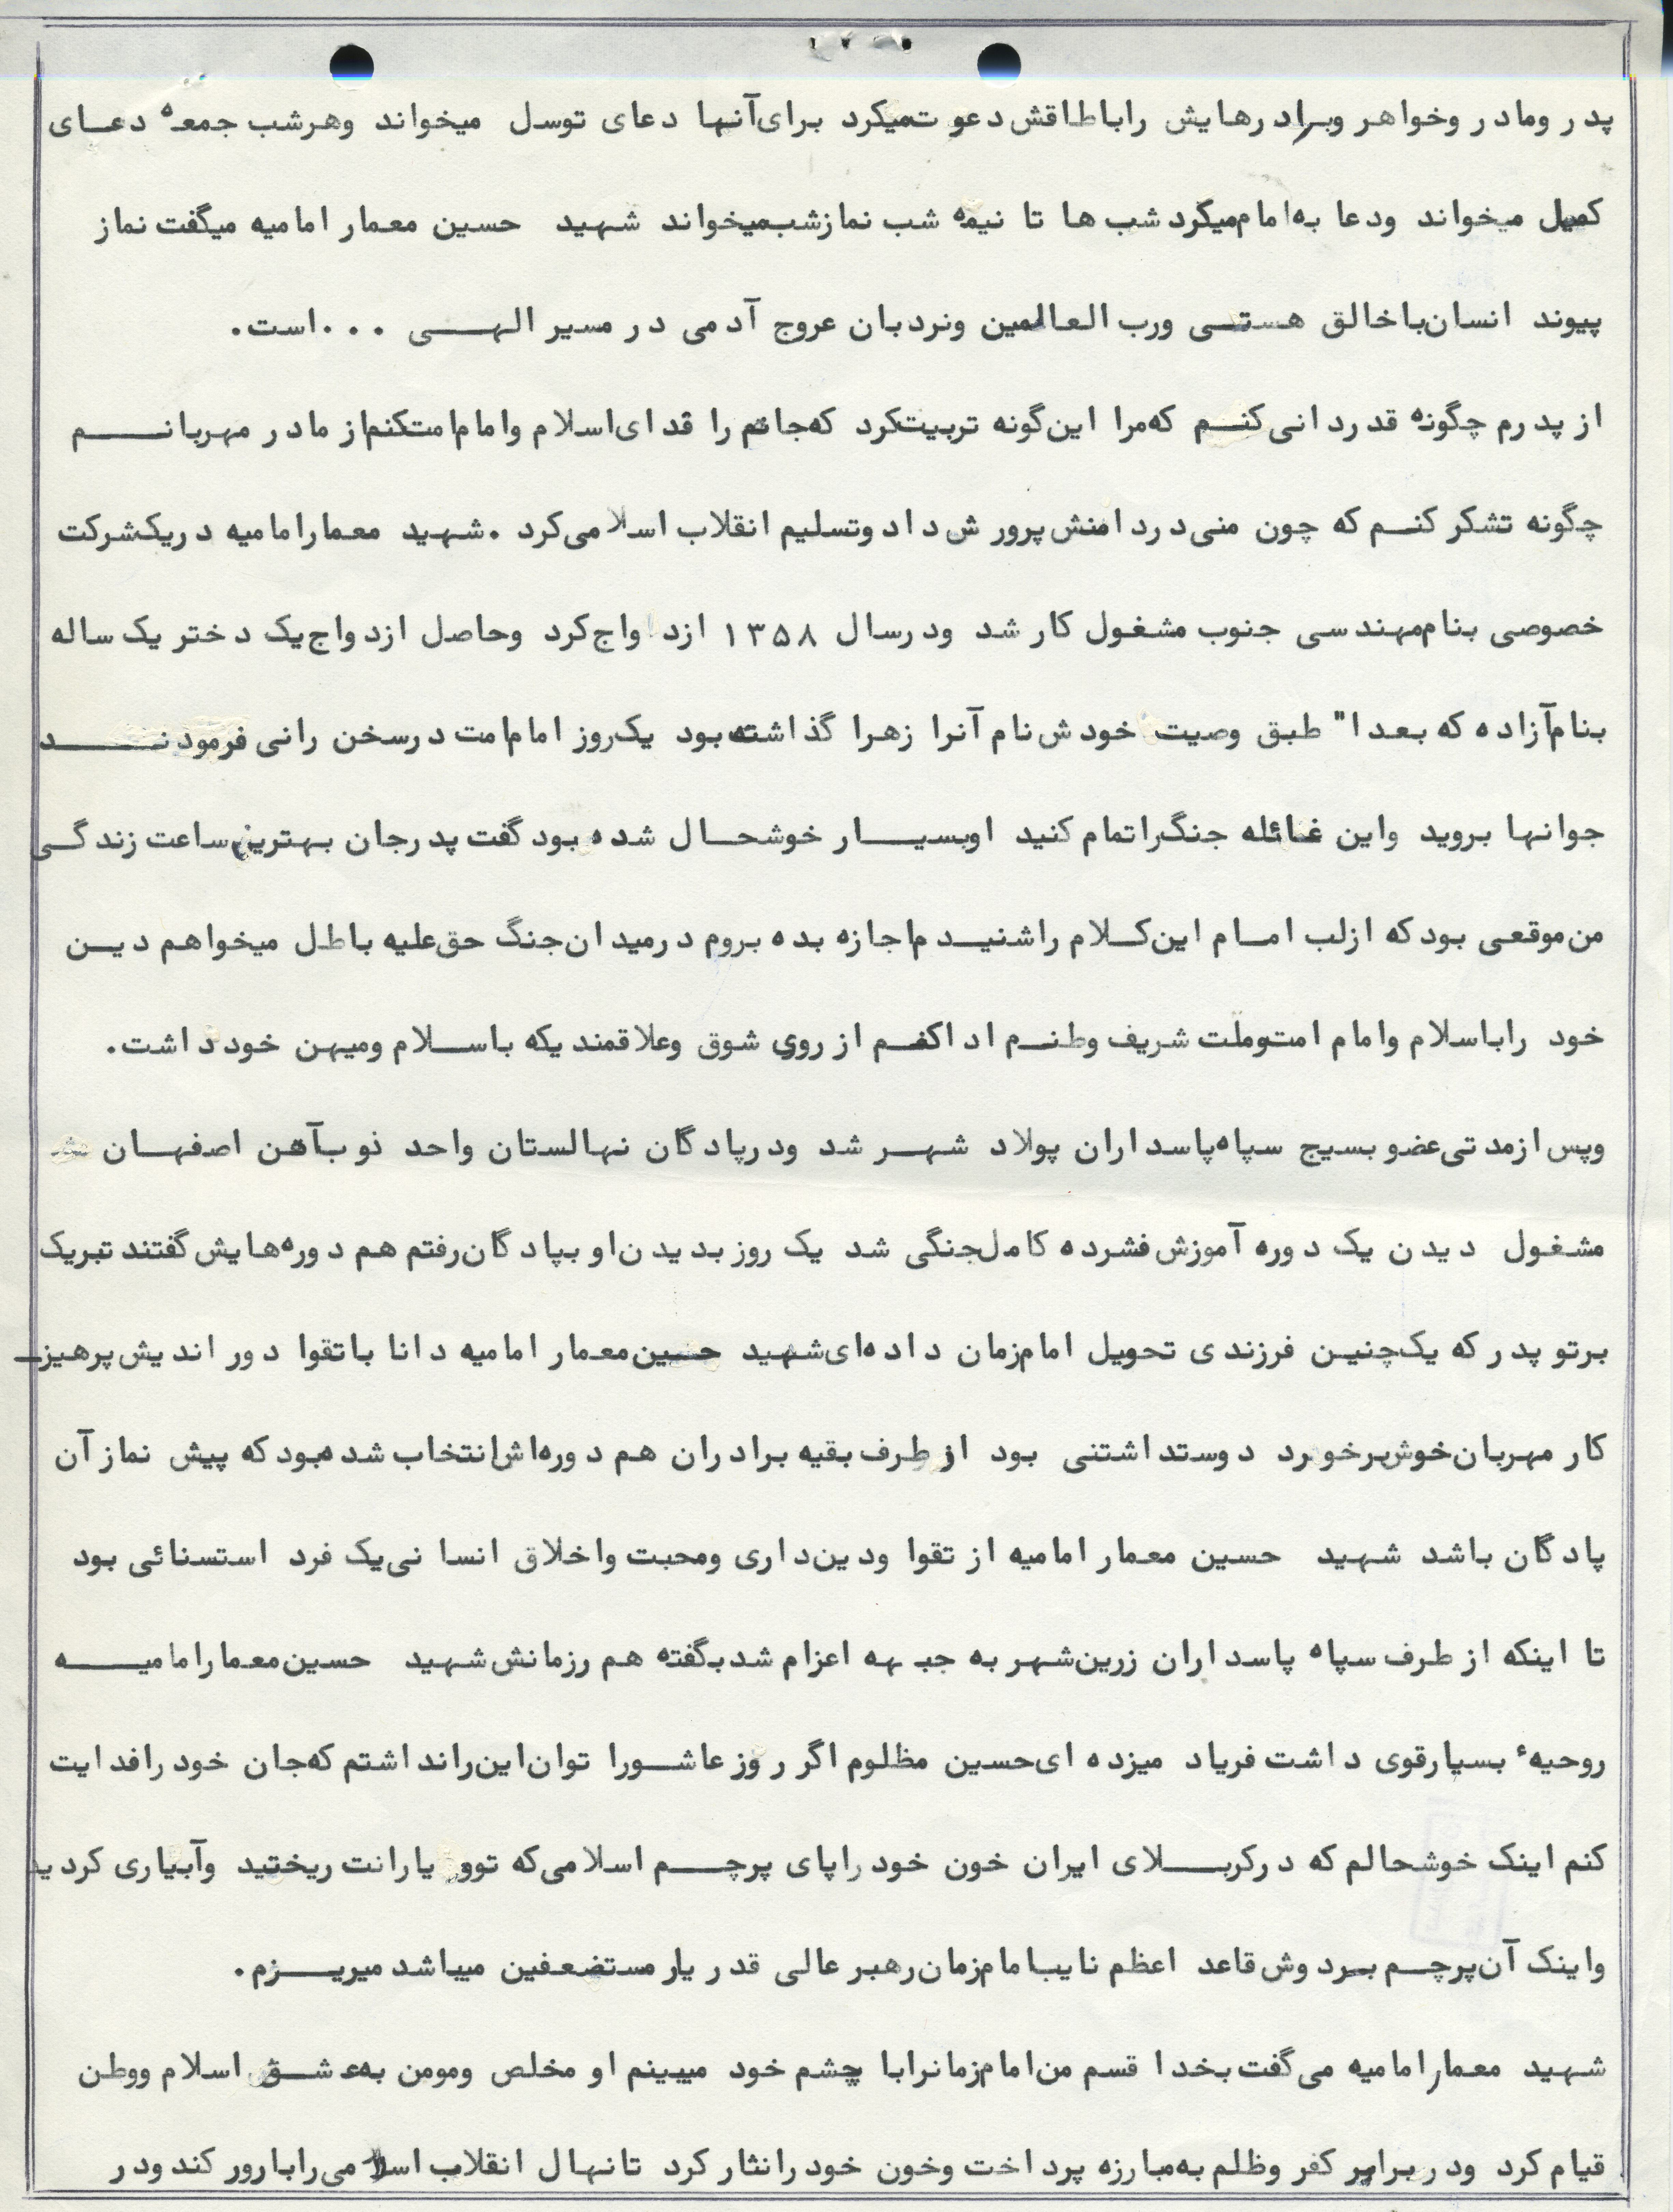 پدر ومادر وخواهر وبرادرهایش راباطاقش دعوت میکرد برای آنها دعای توسل میخواند وهرشب جمعه دعای
کمیل میخواند ودعا به امام میکرد شب ها تا نیمه شب نمازشب میخواند شهید حسین معمار امامیه میگفت نماز
پیوند انسان باخالق هستی ورب العالمین ونردبان عروج آدمی در مسیر الهی ...است.
از پدرم چگونه قدردانی کنم که مرا این گونه تربیت کرد که جانم را فدای اسلام وامام امت کنم از مادر مهربانم
چگونه تشکر کنم که چون منی در دامنش پرورش داد وتسلیم انقلاب اسلامی کرد .شهید معمارامامیه دریک شرکت
خصوصی بنام مهندسی جنوب مشغول کار شد ودرسال ۱۳۵۸ ازدواج کرد وحاصل ازدواج یک دختر یک ساله
بنام آزاده که بعدا" طبق وصیت خودش نام آنرا زهرا گذاشته بود یک روز امام امت درسخن رانی فرمودند
جوانها بروید واین غائله جنگ راتمام کنید اوبسیار خوشحال شده بود گفت پدرجان بهترین ساعت زندگی
من موقعی بود که ازلب امام این کلام راشنیدم اجازه بده بروم درمیدان جنگ حق علیه باطل میخواهم دین
خود راباسلام وامام امت وملت شریف وطنم ادا کنم از روی شوق وعلاقمندیکه باسلام ومیهن خود داشت.
وپس ازمدتی عضو بسیج سپاه پاسداران پولاد شهر شد ودرپادگان نهالستان واحد ذوب آهن اصفهان
مشغول دیدن یک دوره آموزش فشرده کامل جنگی شد یک روز بدیدن او بپادگان رفتم هم دوره هایش گفتند تبریک
برتو پدر که یک چنین فرزندی تحویل امام زمان داده ای شهید حسین معمار امامیه دانا باتقوا دور اندیش پرهیز
کار مهربان خوش برخورد دوست داشتنی بود از طرف بقیه برادران هم دوره اش انتخاب شده بود که پیش نماز آن
پادگان باشد شهید حسین معمار امامیه از تقوا ودین داری ومحبت واخلاق انسانی یک فرد استسنائی بود
تا اینکه از طرف سپاه پاسداران زرین شهر به جبهه اعزام شد بگفته هم رزمانش شهید حسین معمارامامیه
روحیهٔ بسیارقوی داشت فریاد میزده ای حسین مظلوم اگر روز عاشورا توان این رانداشتم که جان خود رافدایت
کنم اینک خوشحالم که درکربلای ایران خون خود راپای پرچم اسلامی که توو یارانت ریختید وآبیاری کردید
واینک آن پرچم بردوش قاعد اعظم نایب امام زمان رهبر عالی قدر یار مستضعفین میباشد میریزم.
شهید معمارامامیه می گفت بخدا قسم من امام زمانرابا چشم خود میبینم او مخلص ومومن به عشق اسلام ووطن
قیام کرد ودر برابر کفر وظلم به مبارزه پرداخت وخون خود رانثار کرد تانهال انقلاب اسلامی رابارور کند ودر